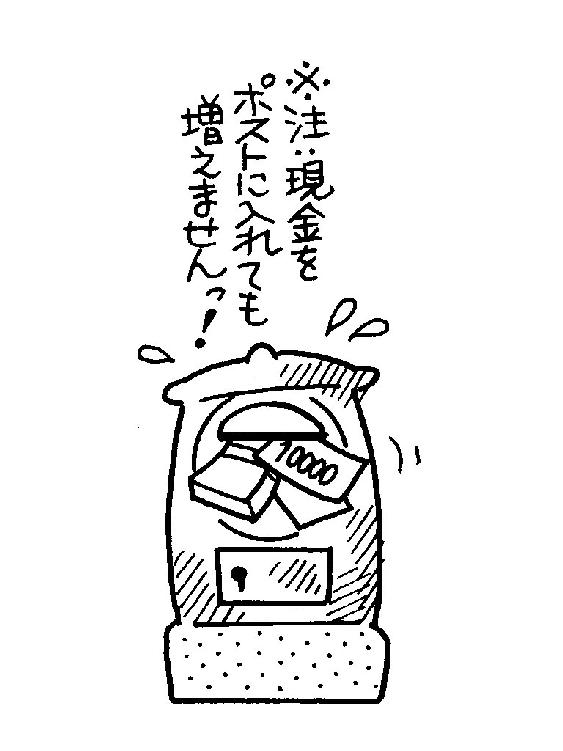 ※注:現金を
ポストに入れても
増えませんっ!
10000